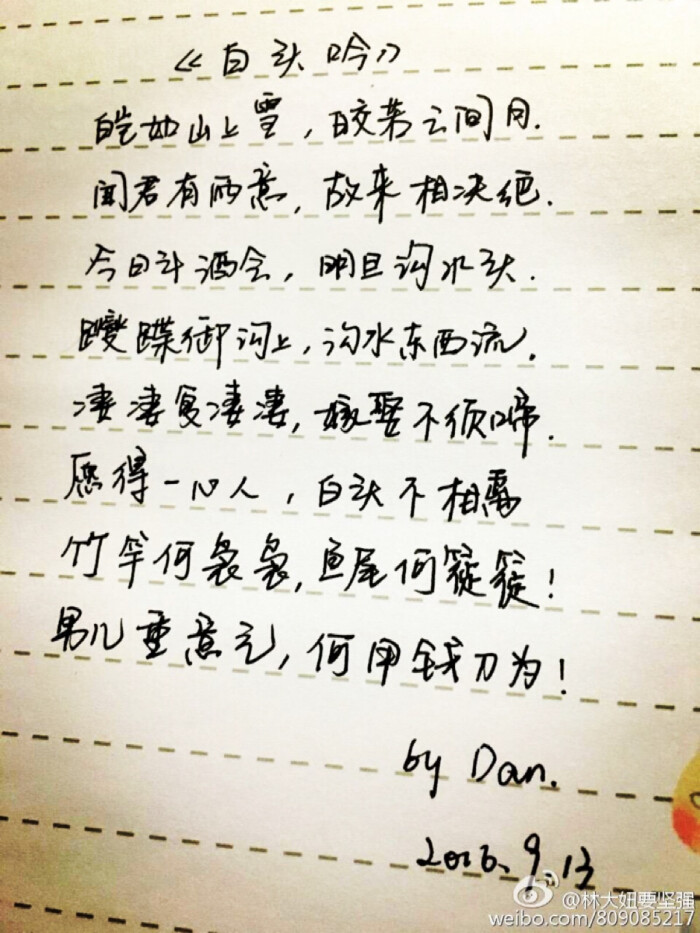 《白头吟》
皑如山上雪，皎若云间月.
闻君有两意，故来相决绝.
今日斗酒会，明旦沟水头.
躞蹀御沟上，沟水东西流.
凄凄复凄凄，嫁娶不须啼.
愿得一心人，白头不相离
竹竿何袅袅，鱼尾何簁簁！
男儿重意气，何用钱刀为！
by Dan.
2016.9.13
@林大妞要坚强
weibo.com/809085217